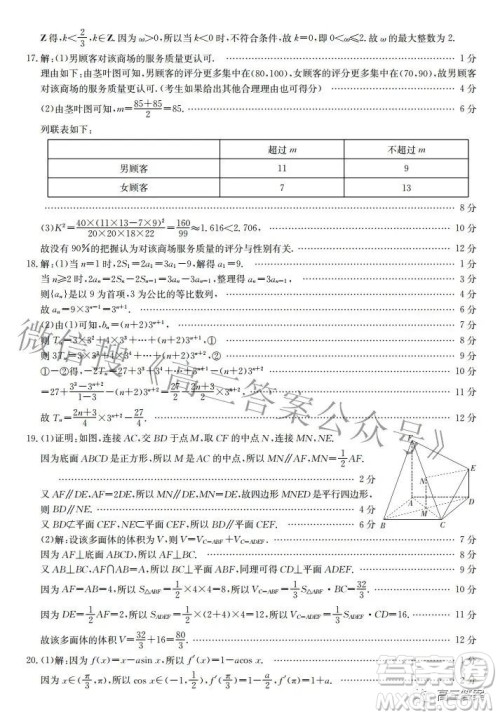 Z得,k<2/3,k∈Z.因为ω>0,所以当k<0时,不符合条件,故k=0,即0<ω≤2.故ω的最大整数为2.
17.解:(1)男顾客对该商场的服务质量更认可. 1分
理由如下:由茎叶图可知,男顾客的评分更多集中在(80,100),女顾客的评分更多集中在(70,90),故男顾客
对该商场的服务质量更认可.(考生如果给出其他合理理由也可得分) 4分
(2)由茎叶图可知,m=(85+85)/2=85. 6分
列联表如下:
超过m 不超过m
男顾客 11 9
女顾客 7 13
8分
(3)K²=40×(11×13-7×9)²/(20×20×18×22)=160/99≈1.616<2.706, 10分
故没有90%的把握认为对该商场服务质量的评分与性别有关. 12分
18.解:(1)当n=1时,2S₁=2a₁=3a₁-9,解得a₁=9. 1分
当n≥2时,2aₙ=2Sₙ-2Sₙ₋₁=3aₙ-3aₙ₋₁,整理得aₙ=3aₙ₋₁, 3分
则{aₙ}是以9为首项,3为公比的等比数列,
故aₙ=9×3ⁿ⁻¹=3ⁿ⁺¹. 5分
(2)由(1)可知,bₙ=(n+2)3ⁿ⁺¹, 6分
则Tₙ=3×3²+4×3³+…+(n+2)3ⁿ⁺¹, ① 8分
则3Tₙ=3×3³+4×3⁴+…+(n+2)3ⁿ⁺², ② 9分
①-②得,-2Tₙ=27+3³+3⁴+…+3ⁿ⁺¹-(n+2)3ⁿ⁺²
故Tₙ=(2n+3)/4×3ⁿ⁺²-27/4. 12分
19.(1)证明:如图,连接AC,交BD于点M,取CF的中点N,连接MN,NE.
因为底面ABCD是正方形,所以M是AC的中点,所以MN∥AF,MN=1/2AF.
2分
又AF∥DE,AF=2DE,所以MN∥DE,MN=DE,故四边形MNED是平行四边形,
则BD∥NE. 4分
又BD⊄平面CEF,NE⊂平面CEF,所以BD∥平面CEF. 6分
(2)解:设该多面体的体积为V,则V=V_C-ABF+V_C-ADEF. 7分
因为AF⊥底面ABCD,所以AF⊥BC.
又BC⊥AB,AF∩AB=A,所以BC⊥平面ABF,同理可得CD⊥平面ADEF. 8分
因为AF=AB=4,所以S△ABF=1/2×4×4=8,所以V_C-ABF=1/3S△ABF·BC=32/3. 10分
因为DE=1/2AF=2,所以S_ADEF=1/2×(2+4)×4=12,所以V_C-ADEF=1/3S_ADEF·CD=16. 11分
故该多面体的体积V=32/3+16=80/3. 12分
20.(1)解:因为f(x)=x-asin x,所以f′(x)=1-acos x. 1分
因为x∈(π/3,π),所以cos x∈(-1,1/2).
微信搜《高三答案公众号》
高三答案